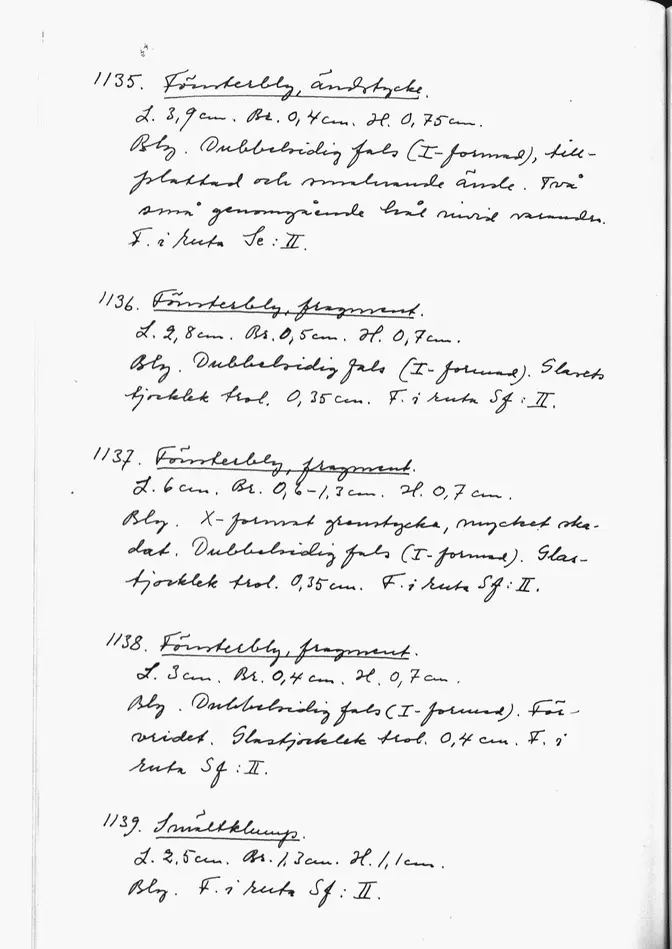 1135. Fönsterbly, ändstycke.
L. 3,9 cm. Br. 0,4 cm. H. 0,75 cm.
Bly. Dubbelsidig fals (I-formad), till-
plattad och smalnande ände. Två
små genomgående hål invid varandra.
F. i ruta Se : II.
1136. Fönsterbly, fragment.
L. 2,8 cm. Br. 0,5 cm. H. 0,7 cm.
Bly. Dubbelsidig fals (I-formad). Glasets
tjocklek trol. 0,35 cm. F. i ruta Sf : II.
1137. Fönsterbly, fragment.
L. 6 cm. Br. 0,6-1,3 cm. H. 0,7 cm.
Bly. X-format grenstycke, mycket ska-
dat. Dubbelsidig fals (I-formad). Glas-
tjocklek trol. 0,35 cm. F. i ruta Sf : II.
1138. Fönsterbly, fragment.
L. 3 cm. Br. 0,4 cm. H. 0,7 cm.
Bly. Dubbelsidig fals (I-formad). För-
vridet. Glastjocklek trol. 0,4 cm. F. i
ruta Sf : II.
1139. Smältklump.
L. 2,5 cm. Br. 1,3 cm. H. 1,1 cm.
Bly. F. i ruta Sf : II.